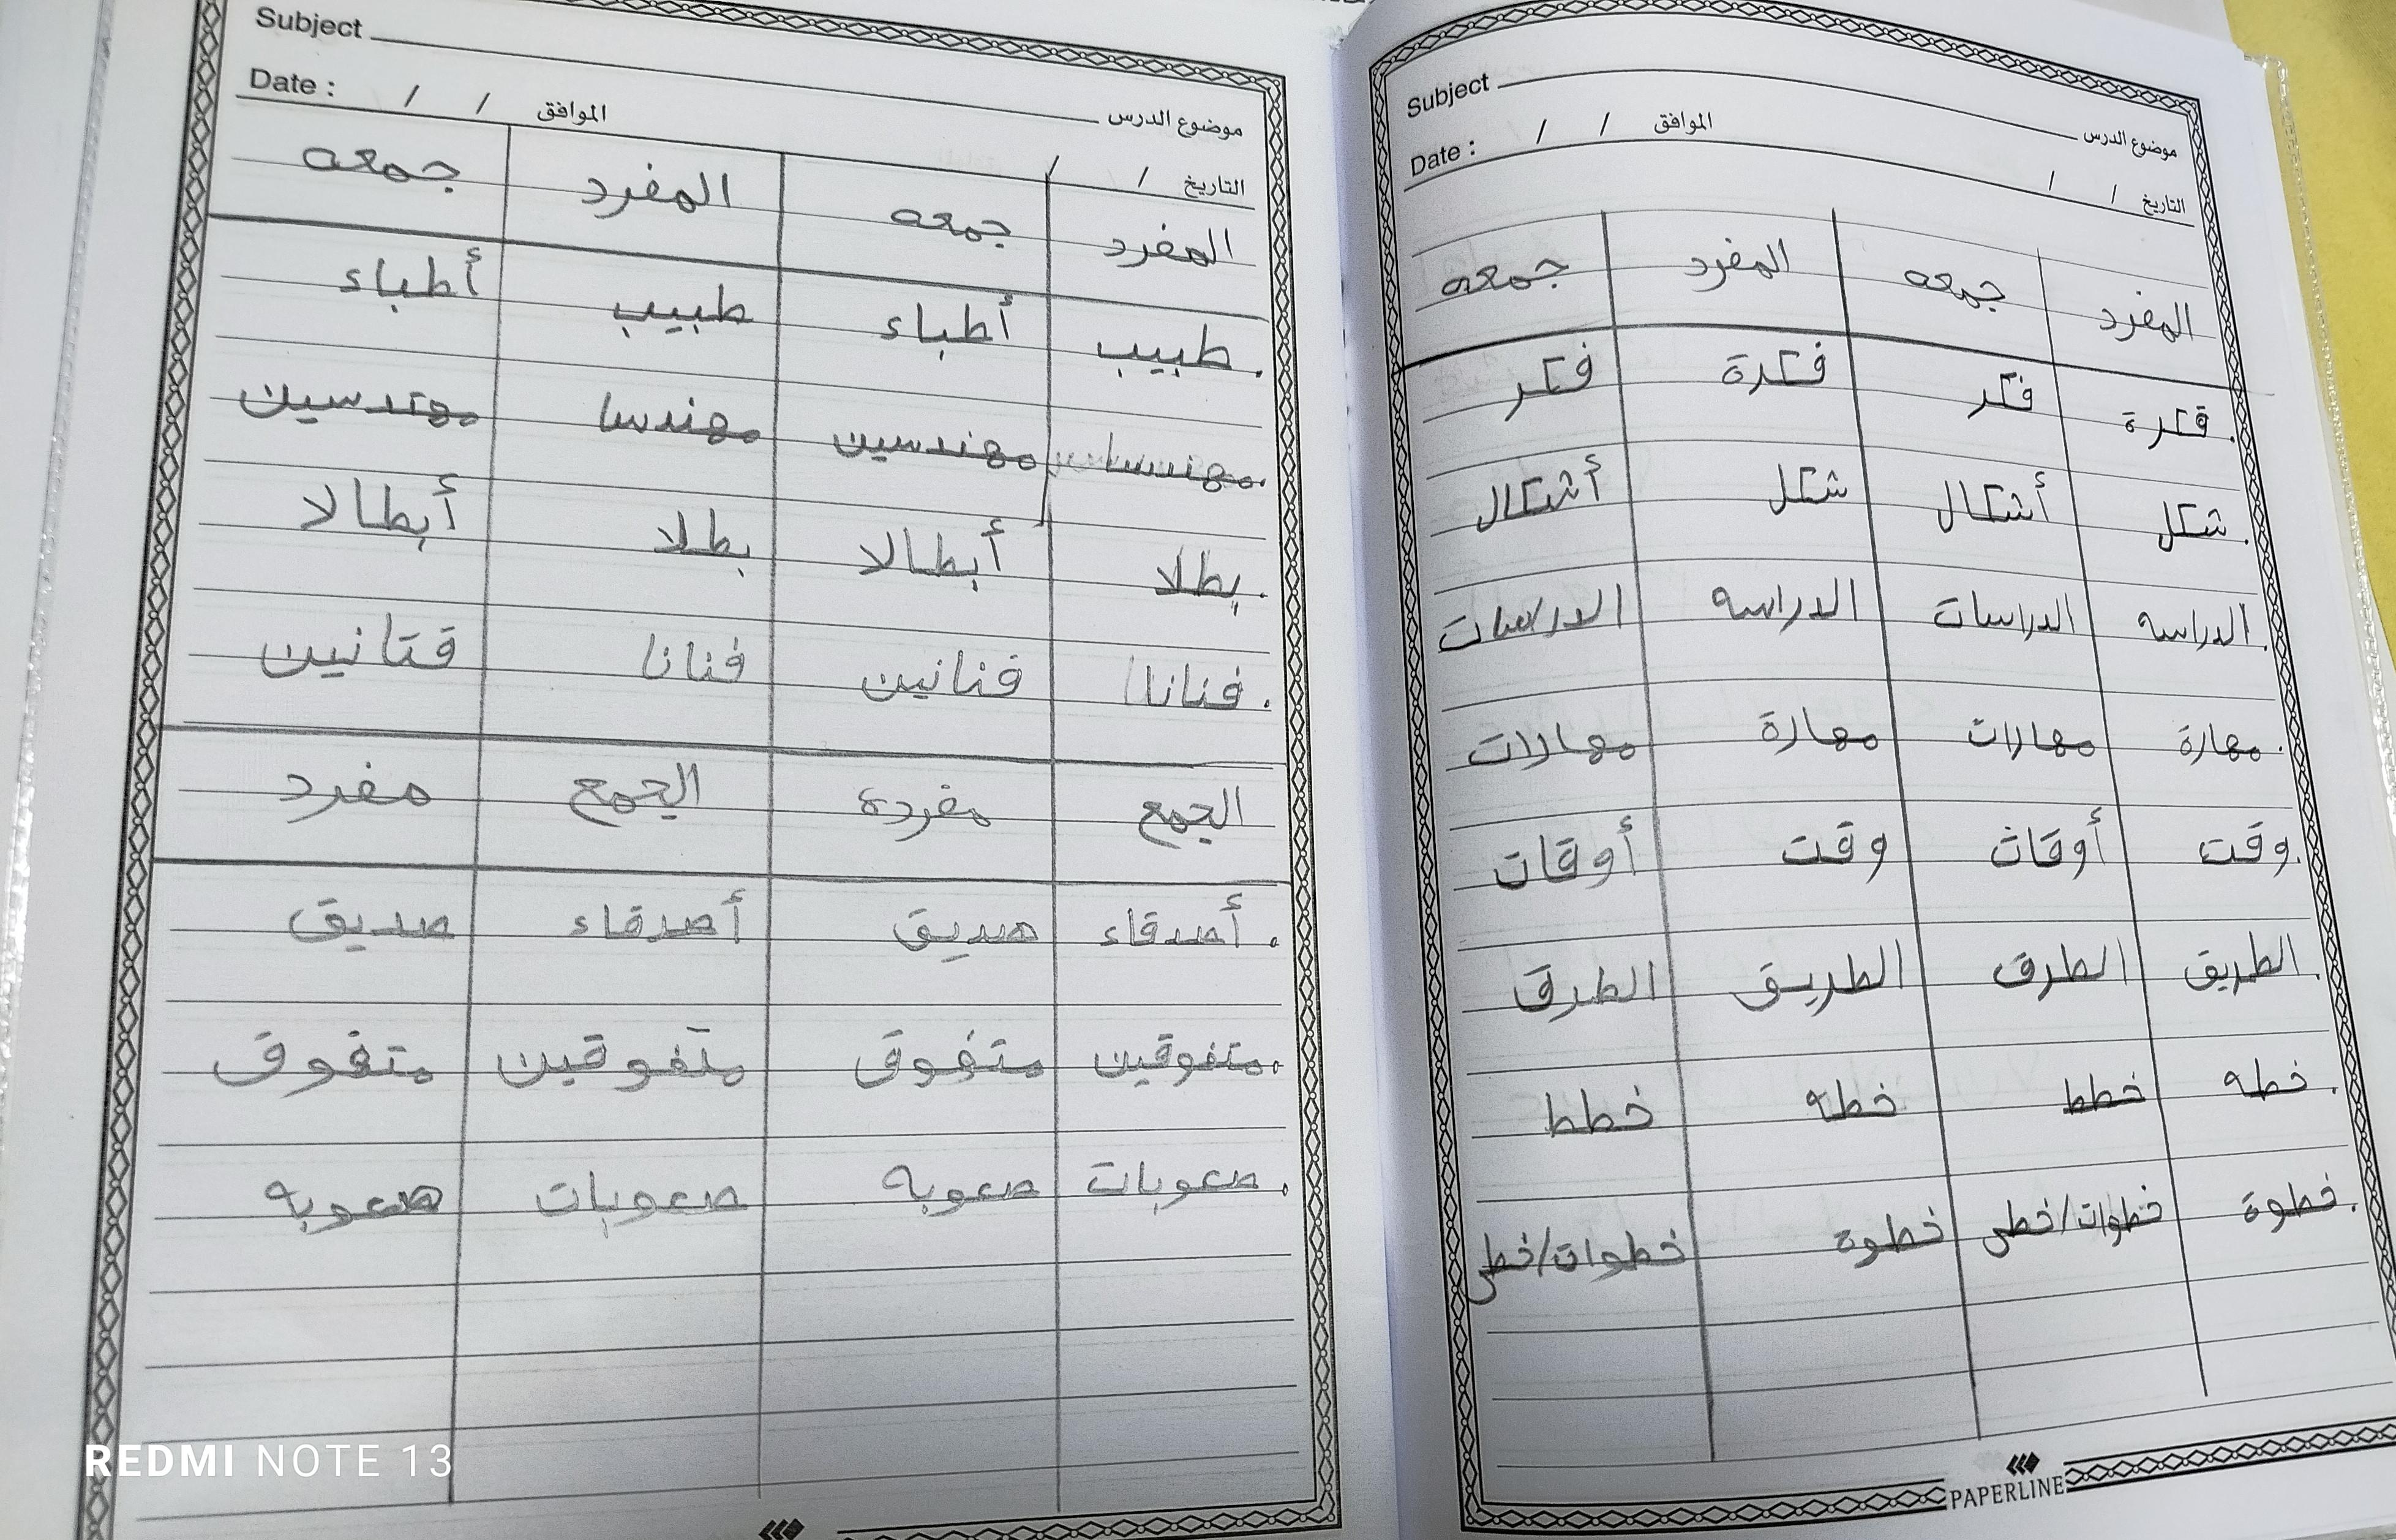 Subject موضوع الدرس
Date : / / الموافق / / التاريخ
المفرد جمعه المفرد جمعه
قكرة . فكر فكرة فكر
شكل . أشكال شكل أشكال
الدراسه . الدراسات الدراسه الدراسات
مهارة . مهارات مهارة مهارات
وقت . أوقات وقت أوقات
الطريق . الطرق الطريق الطرق
خطه . خطط خطه خطط
خطوة . خطوات/خطى خطوة خطوات/خطى
PAPERLINE
Subject موضوع الدرس
Date : / / الموافق / / التاريخ
المفرد جمعه المفرد جمعه
طبيب . أطباء طبيب أطباء
مهندسين مهندسا مهندسين
بطلا . أبطالا بطلا أبطالا
فنانا . فنانين فنانا قتانين
الجمع مفرده الجمع مفرد
أصدقاء . صديق أصدقاء صديق
متفوقين . متفوق متفوقين متفوق
صعوبات . صعوبه صعوبات صعوبه
REDMI NOTE 13